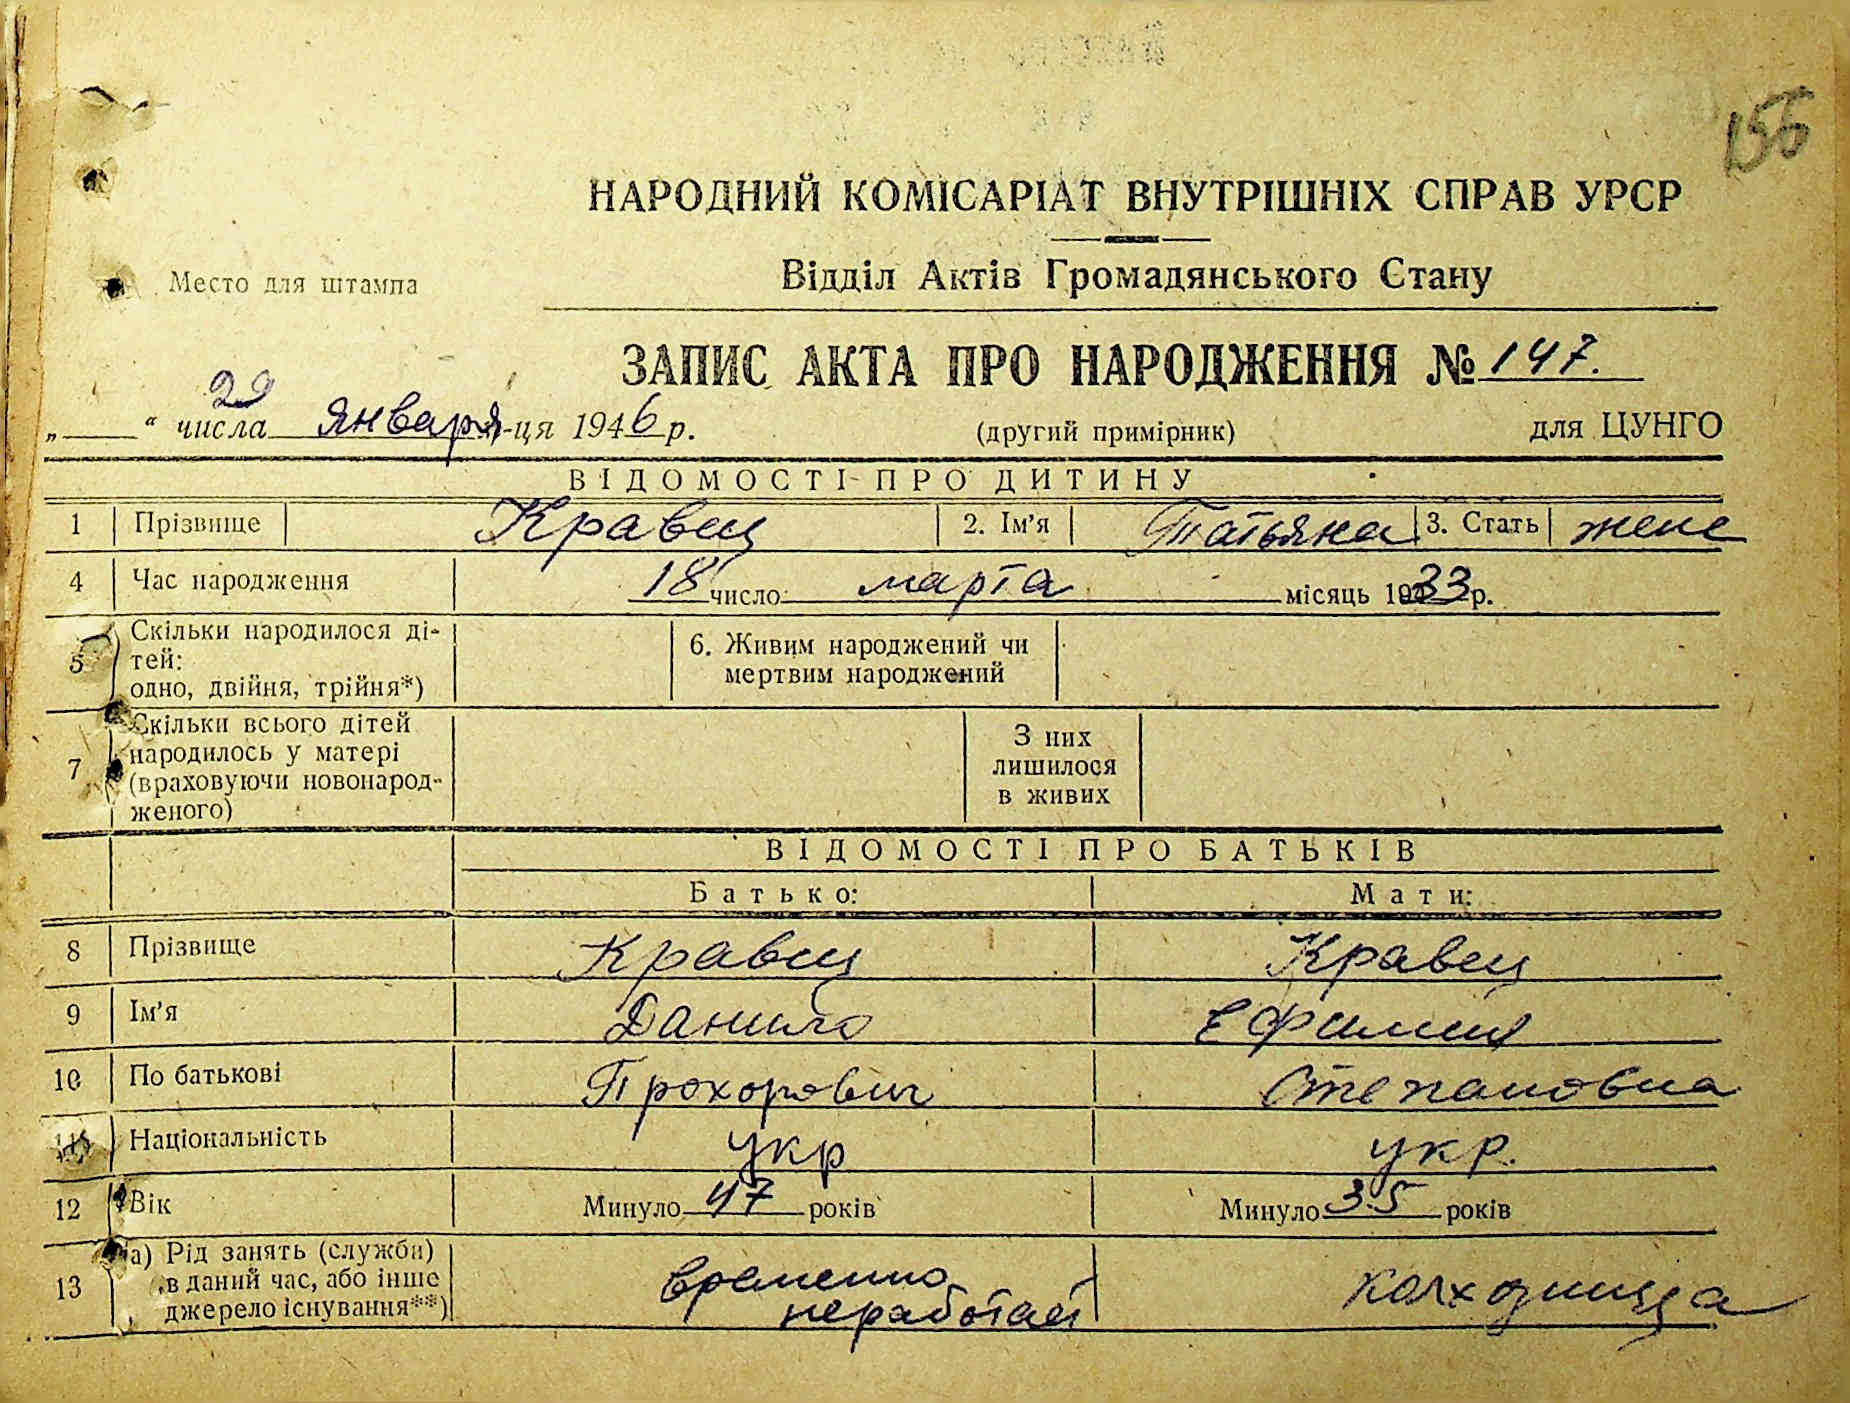 155
НАРОДНИЙ КОМІСАРІАТ ВНУТРІШНІХ СПРАВ УРСР
Место для штампа
Відділ Актів Громадянського Стану
ЗАПИС АКТА ПРО НАРОДЖЕННЯ № 147.
„ 29 “ числа января м-ця 1946 р. (другий примірник) для ЦУНГО
ВІДОМОСТІ ПРО ДИТИНУ
1 Прізвище Кравец 2. Ім’я Татьяна 3. Стать женс
4 Час народження 18 число марта місяць 1933 р.
5 Скільки народилося ді-
тей:
одно, двійня, трійня*)
6. Живим народжений чи
мертвим народжений
7 Скільки всього дітей
народилось у матері
(враховуючи новонарод-
женого)
З них
лишилося
в живих
ВІДОМОСТІ ПРО БАТЬКІВ
Батько: Мати:
8 Прізвище Кравец Кравец
9 Ім’я Данило Ефимия
10 По батькові Прохорович Степановна
11 Національність укр укр.
12 Вік Минуло 47 років Минуло 35 років
13 а) Рід занять (служби)
в даний час, або інше
джерело існування**)
временно
неработает
колхозница